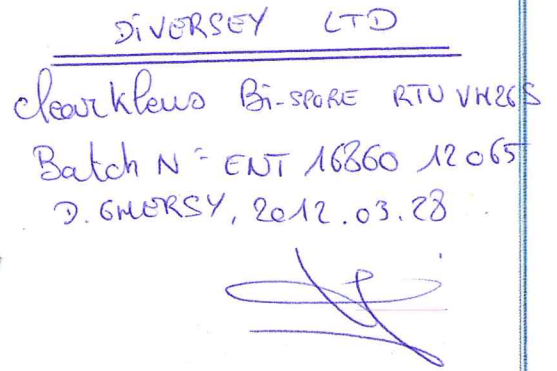 DiVERSEY LTD
Clearklens Bi-SPORE RTU VH26S
Batch N° ENT 16860 12065
D. GHERSY, 2012.03.28